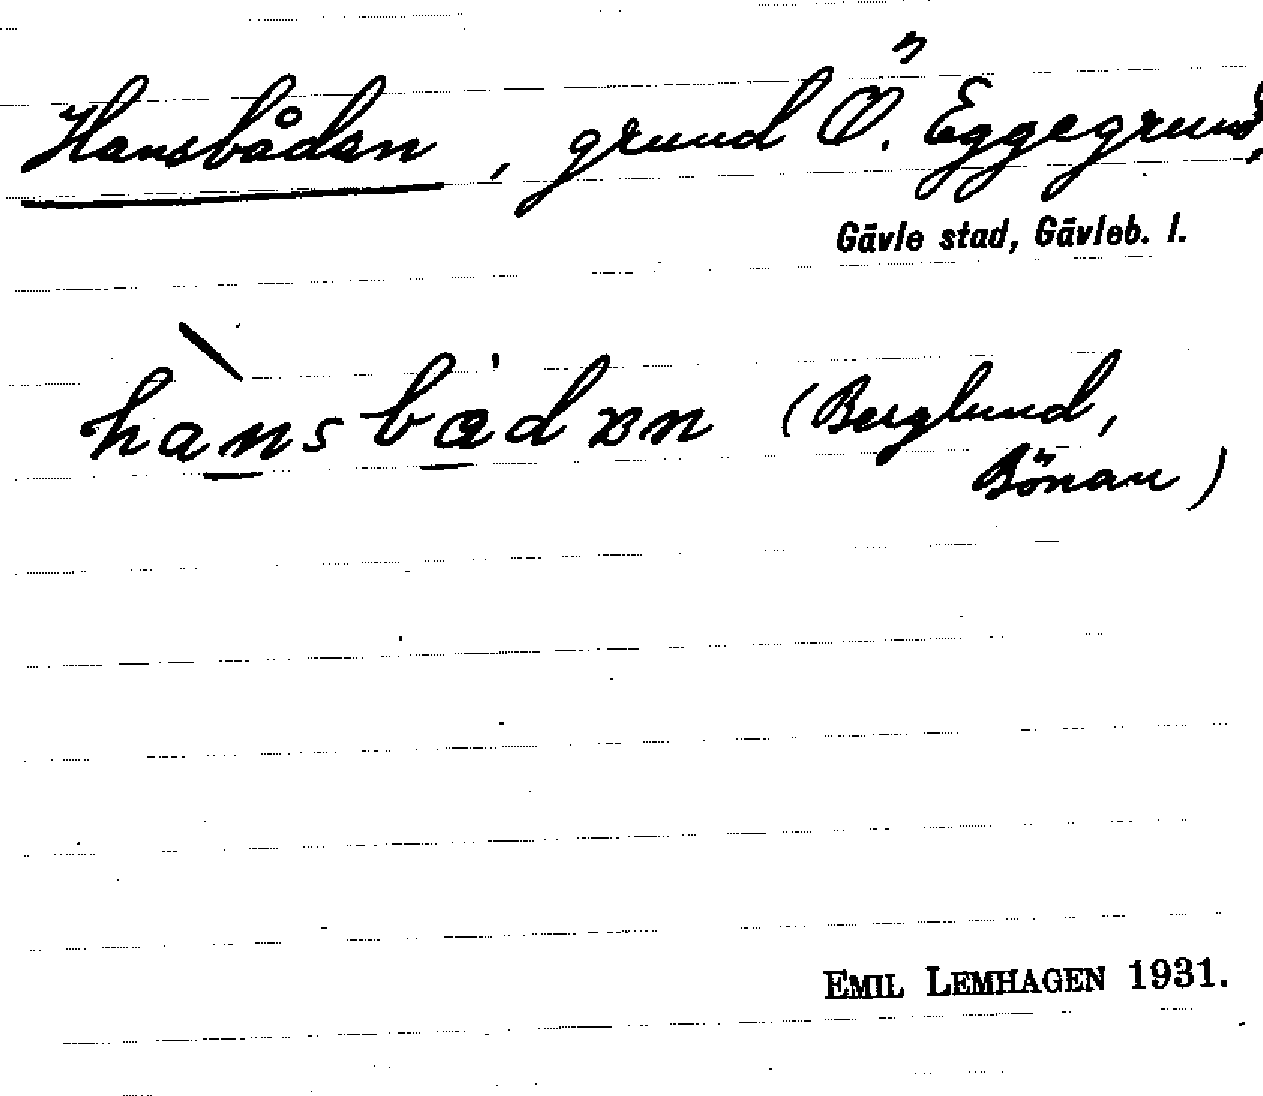 Hansbådan, grund Ö. Eggegrund,
Gävle stad, Gävleb. l.
(Berglund,
Bönan)
EMIL LEMHAGEN 1931.